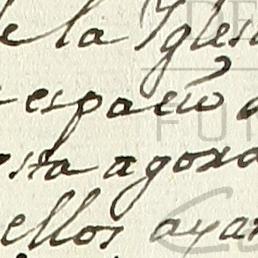 e la Igles
espacio
sta agora
ellos ayan